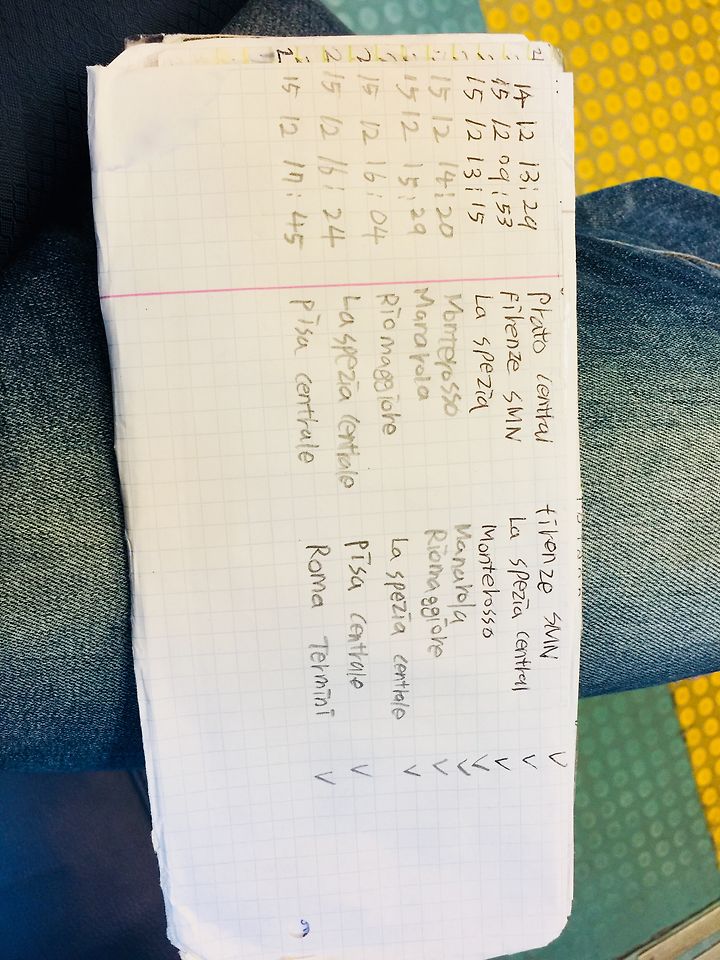 14 12 13:29 Prato central firenze SMN V
15 12 09:53 firenze SMN La spezia central V
15 12 13:15 La spezia Monterosso V
15 12 14:20 Monterosso Manarola V
15 12 15:29 Manarola Riomaggiore V
2 15 12 16:04 Riomaggiore La spezia centrale V
2 15 12 16:24 La spezia centrale Pisa centrale V
2 15 12 17:45 Pisa centrale Roma Termini V